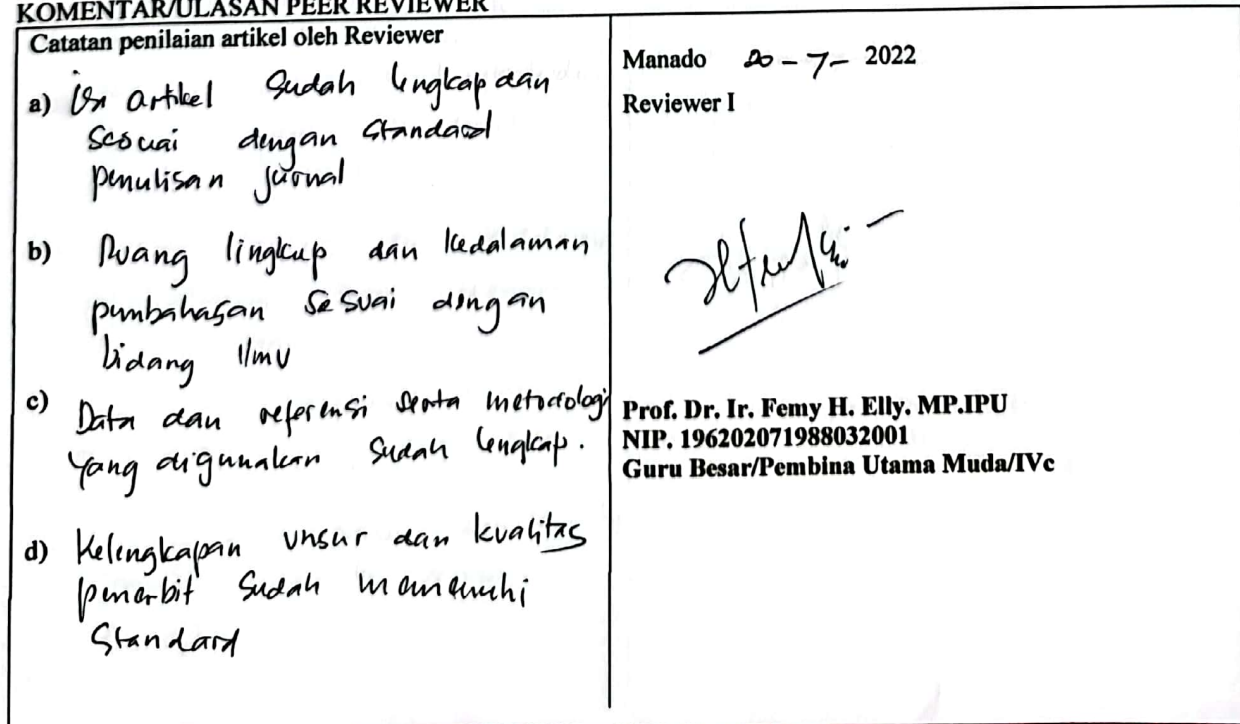 KOMENTAR/ULASAN PEER REVIEWER
Catatan penilaian artikel oleh Reviewer
a) Isi artikel sudah lengkap dan
sesuai dengan standard
penulisan jurnal
b) Ruang lingkup dan kedalaman
pembahasan sesuai dengan
bidang ilmu
c) Data dan referensi serta metodologi
yang digunakan sudah lengkap.
d) Kelengkapan unsur dan kualitas
penerbit sudah memenuhi
standard
Manado 20-7-2022
Reviewer I
Prof. Dr. Ir. Femy H. Elly. MP.IPU
NIP. 196202071988032001
Guru Besar/Pembina Utama Muda/IVc